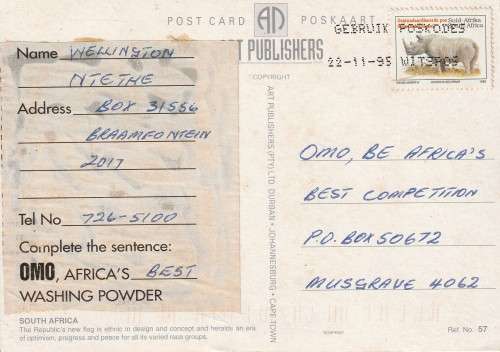 POST CARD POSKAART
AP
T PUBLISHERS
GEBRUIK POSKODES
22-11-95 WITSPOS
Suid-Afrika
South Africa
Name WELLINGTON
NTETHE
Address BOX 31556
BRAAMFONTEIN
2017
Tel No 726-5100
Complete the sentence:
OMO, AFRICA'S BEST
WASHING POWDER
COPYRIGHT
ART PUBLISHERS (PTY) LTD DURBAN • JOHANNESBURG • CAPE TOWN
OMO, BE AFRICA'S
BEST COMPETITION
P.O. BOX 50672
MUSGRAVE 4062
SOUTH AFRICA
The Republic's new flag is ethnic in design and concept and heralds an era
of optimism, progress and peace for all its varied race groups.
Ref. No. 57